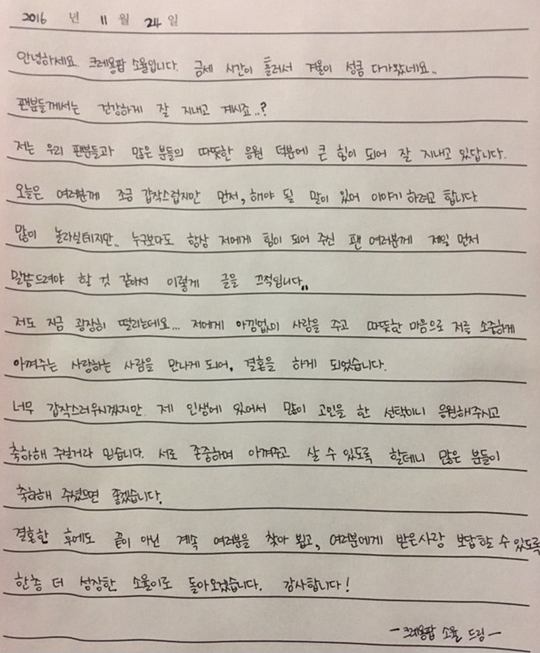 2016 년 11 월 24 일
안녕하세요. 크레용팝 소율입니다. 금세 시간이 흘러서 겨울이 성큼 다가왔네요..
팬분들께서는 건강하게 잘 지내고 계시죠..?
저는 우리 팬분들과 많은 분들의 따뜻한 응원 덕분에 큰 힘이 되어 잘 지내고 있답니다.
오늘은 여러분께 조금 갑작스럽지만 먼저, 해야 될 말이 있어 이야기 하려고 합니다
많이 놀라실테지만.. 누구보다도 항상 저에게 힘이 되어 주신 팬 여러분께 제일 먼저
말씀드려야 할 것 같아서 이렇게 글을 끄적입니다..
저도 지금 굉장히 떨리는데요... 저에게 아낌없이 사랑을 주고 따뜻한 마음으로 저를 소중하게
아껴주는 사랑하는 사람을 만나게 되어, 결혼을 하게 되었습니다.
너무 갑작스러우시겠지만 제 인생에 있어서 많이 고민을 한 선택이니 응원해주시고
축하해 주실거라 믿습니다. 서로 존중하며 아껴주고 살 수 있도록 할테니 많은 분들이
축하해 주셨으면 좋겠습니다.
결혼한 후에도 끝이 아닌 계속 여러분을 찾아 뵙고, 여러분에게 받은사랑 보답할 수 있도록
한층 더 성장한 소율이로 돌아오겠습니다. 감사합니다!
-크레용팝 소율 드림-